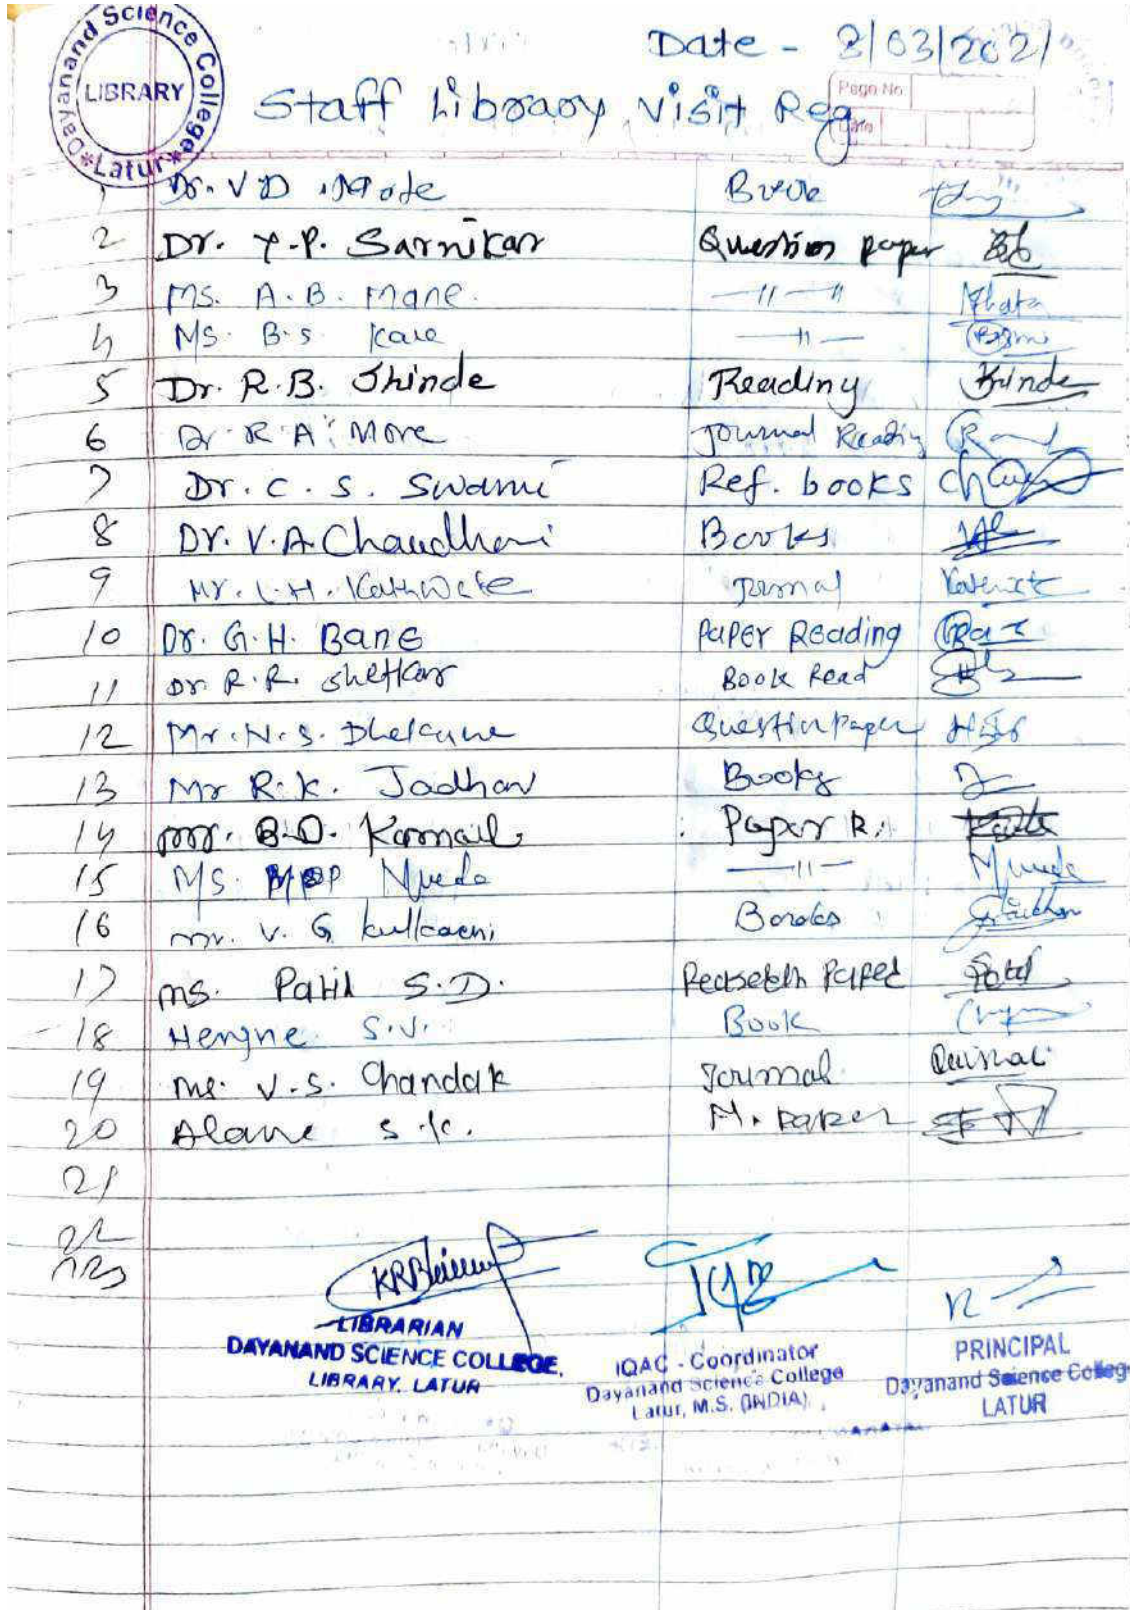 Dayanand Science College
LIBRARY
*Latur*
Date - 8/03/2021
Page No.
Date
Staff Library Visit Reg
1 Dr. V D Book
2 Dr. Y.P. Sarnikar Question paper
3 Ms. A.B. Mane. —11—11
4 Ms. B.S. Kale —11—
5 Dr. R.B. Shinde Reading Shinde
6 Dr R A. More Journal Reading
7 Dr. C. S. Swami Ref. books
8 Dr. V.A. Chaudhari Books
9 Mr. L.H. Kathwate Jornal
10 Dr. G.H. Bane Paper Reading
11 Dr. R.R. Shetkar Book Read
12 Mr. N.S. Dhekane Question paper
13 Mr R.K. Jadhav Books
14 Mr. B.D. Karnail Paper R.
15 Ms. —11—
16 mr. V. G Kulkarni Books
17 ms. Patil S.D. Paper Patil
18 Hengne S.V. Book
19 Ms. V.S. Chandak Journal
20 Alane S.K. N. paper
21
22
23
LIBRARIAN
DAYANAND SCIENCE COLLEGE,
LIBRARY, LATUR
IQAC - Coordinator
Dayanand Science College
Latur, M.S. (INDIA)
PRINCIPAL
Dayanand Science College
LATUR